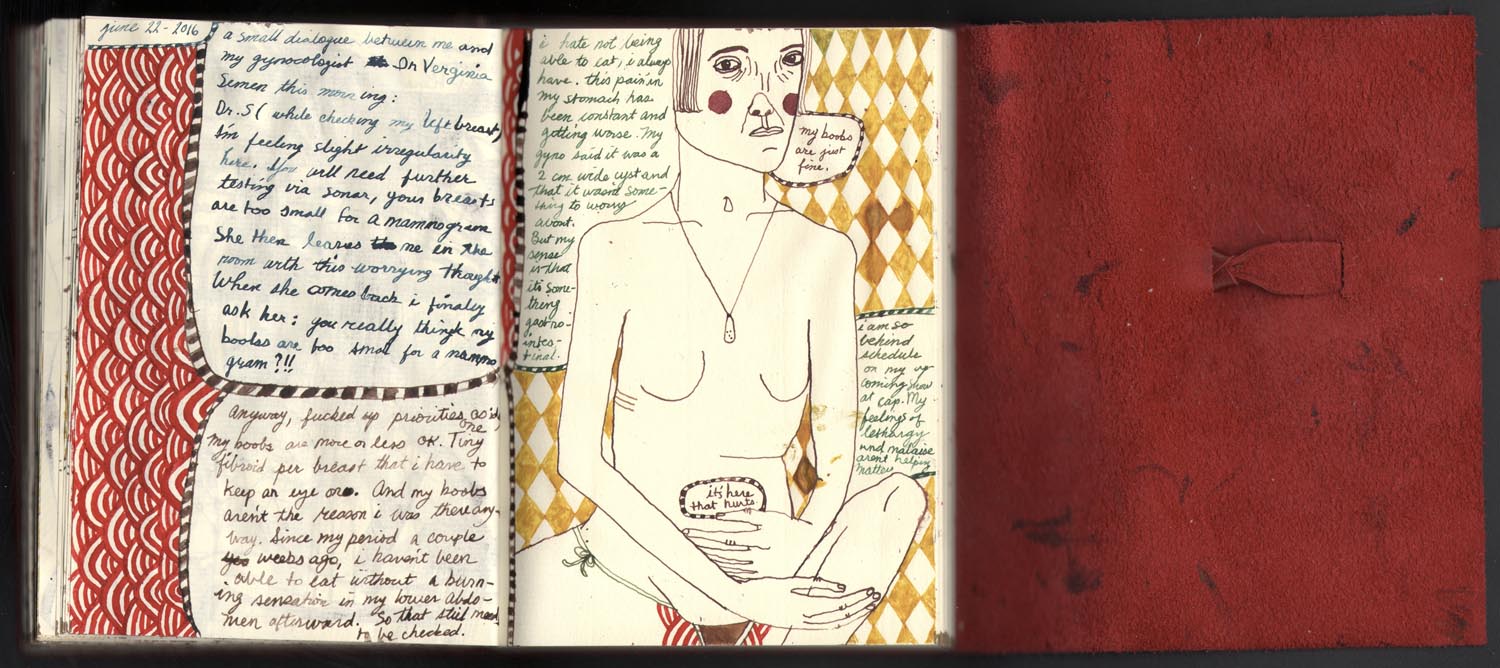 june 22 - 2016
a small dialogue between me and
my gynocologist Dr Verginia
Semen this morning:
Dr. S ( while checking my left breast)
Im feeling slight irregularity
here. You will need further
testing via sonar, your breasts
are too small for a mammogram
She then leaves me in the
room with this worrying thought
When she comes back i finally
ask her: you really thingk my
boobs are too smal for a mammo
gram ?!!
Anyway, fucked up priorities aside,
my boobs are more or less OK. Tiny one
fibroid per breast that i have to
keep an eye on. And my boobs
arent the reason i was there any-
way. Since my period a couple
weebs ago, i haven't been
able to eat without a burn-
ing sensation in my lower abdo-
men afterward. So that still need
to be checked.
i hate not being
able to eat, i always
have. this pain in
my stomach has
been constant and
getting worse. My
gyno said it was a
2 cm wide cyst and
that it wasnt some-
thing to worry
about.
But my
sense
is that
its some-
thing
gastro-
intes-
tinal.
my boobs
are just
fine.
i am so
behind
schedule
on my up
coming show
at cap. My
feelings of
lethargy
and malaise
arent helping
matters
it's here
that hurts